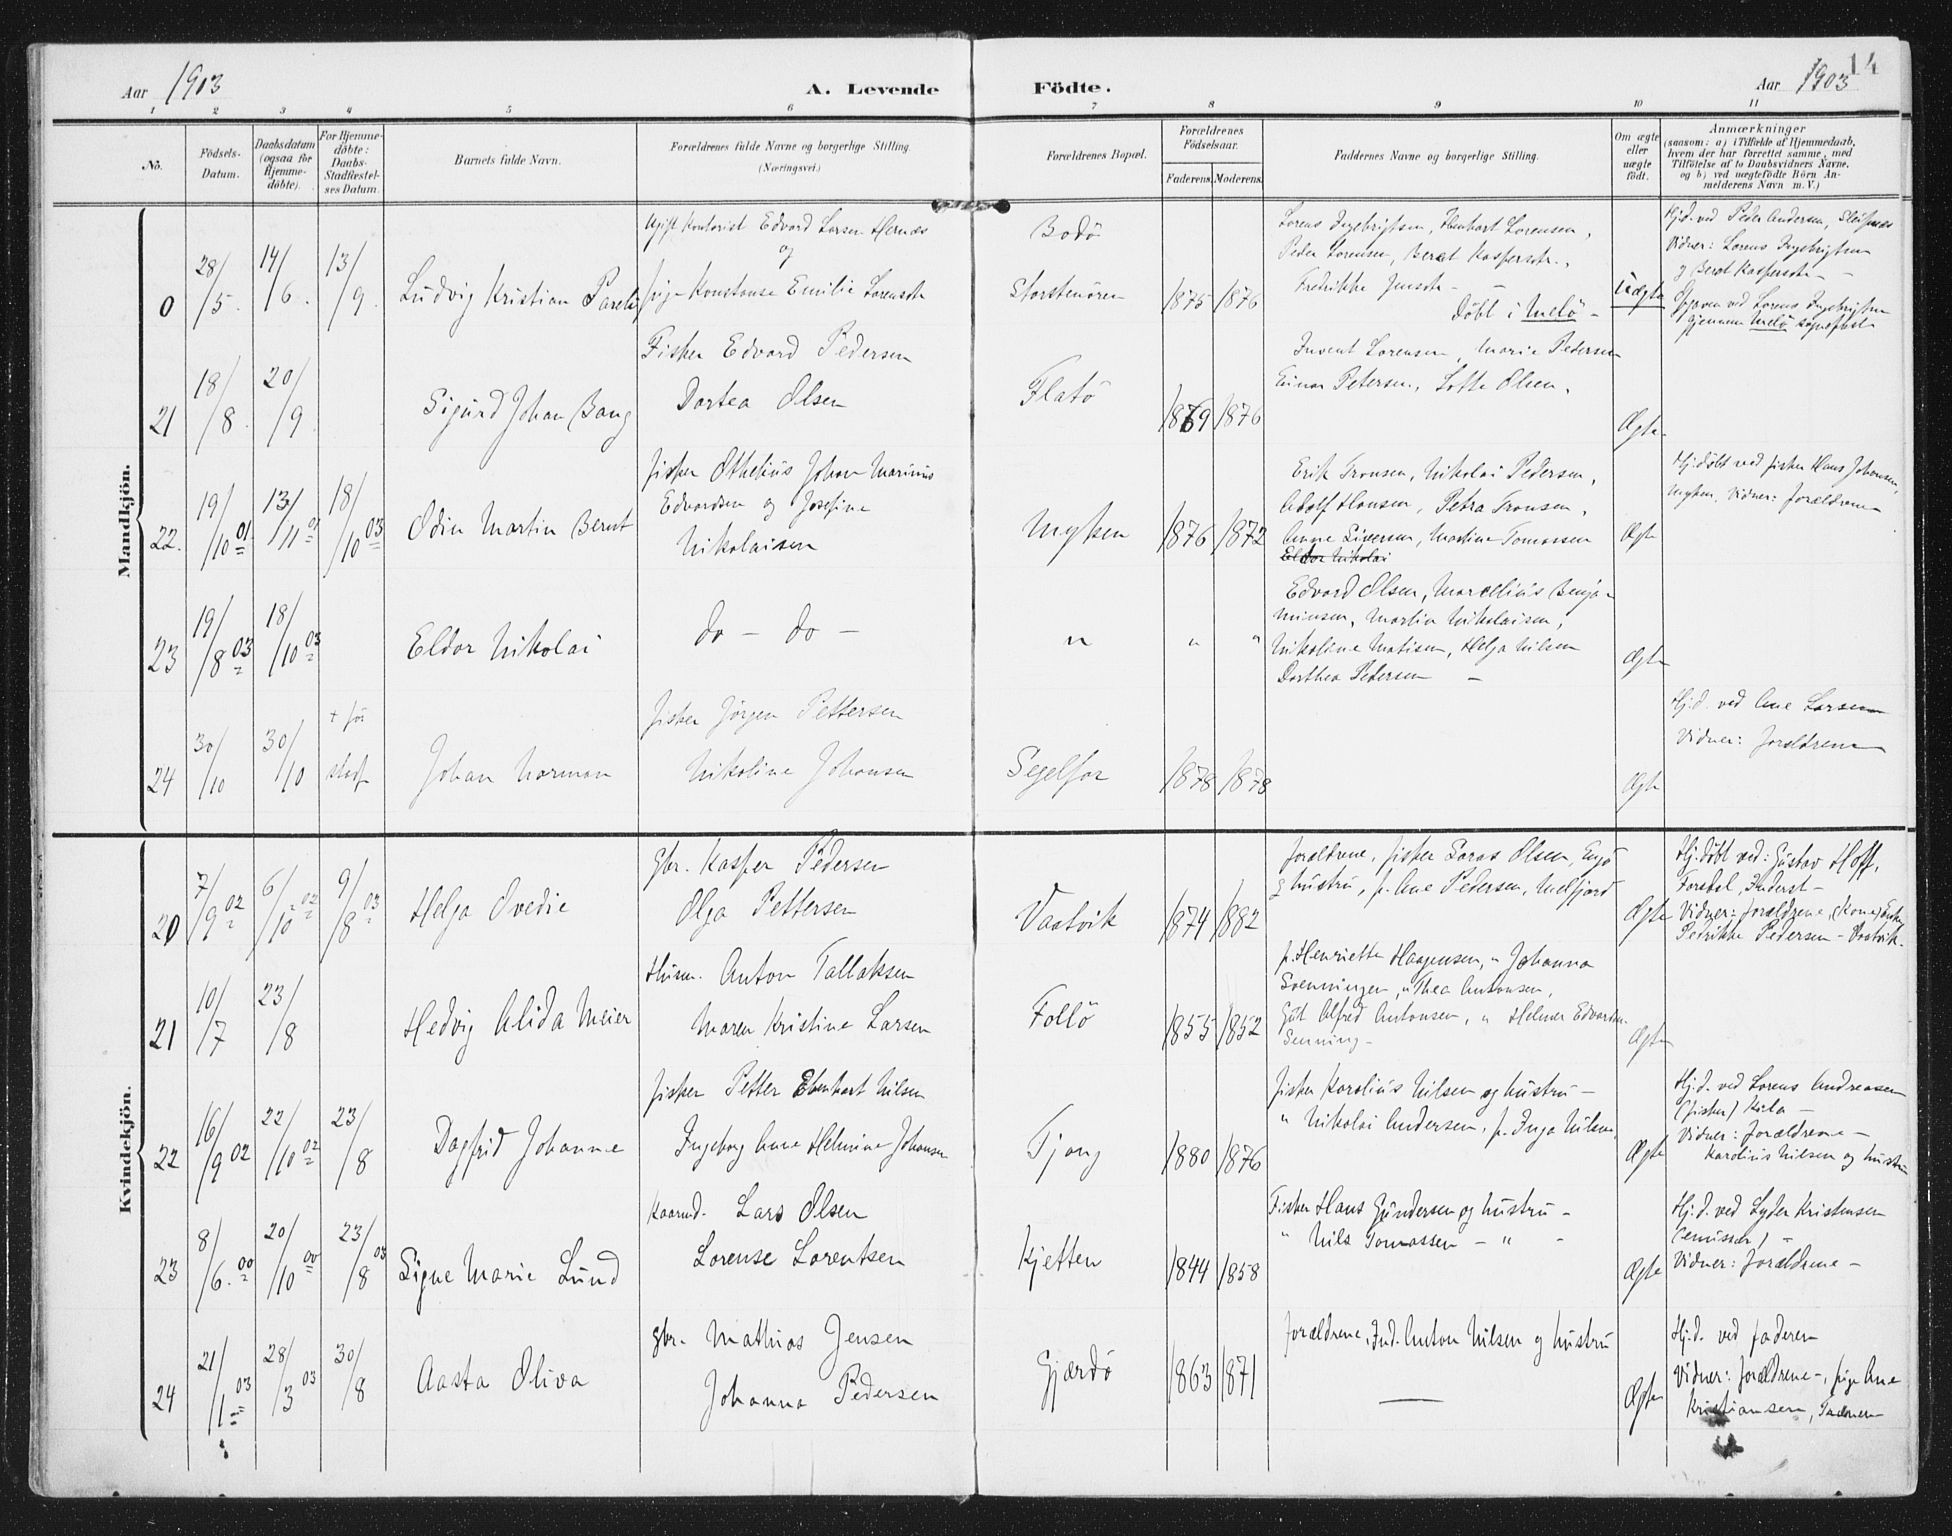 14
Aar 1903
A. Levende Födte.
Aar 1903
1 2 3 4 5 6 7 8 9 10 11
No.
Födsels-
Datum.
Daabsdatum
(ogsaa for
Hjemme-
döbte).
For Hjemme-
döbte:
Daabs-
Stadfæstel-
ses Datum.
Barnets fulde Navn.
Forældrenes fulde Navne og borgerlige Stilling.
(Næringsvei.)
Forældrenes Bopæl.
Forældrenes
Födselsaar.
Faderens. Moderens.
Faddernes Navne og borgerlige Stilling.
Om ægte
eller
uægte
født.
Anmærkninger
(saasom: a) i Tilfælde af Hjemmedaab,
hvem der har forrettet samme, med
Tilföielse af to Daabsvidners Navne,
og b) ved uægtefödte Börn An-
melderens Navn m. V.)
Mandkjön.
0
28/5.
14/6.
13/9.
Ludvig Kristian Parelius
Ugift Kontorist Edvard Larsen Hernæs
og
pige Konstanse Emilie Lorensdtr
Bodö
Storstenören
1875
1876
Lorens Ingebrigtsen, Ebenhart Lorensen,
Peder Lorensen, Beret Kaspersdtr.,
Fredrikke Jensdtr –
Döbt i Melö –
Uægte
Hj.d. ved Peder Andersen,
Vidner: Lorens Ingebrigtsen
og Beret Kaspersdtr –
Opgiven ved Lorens Ingebrigtsen
gjennem Melö sogneprest
21
18/8.
20/9.
Sigurd Johan Bang
Fisker Edvard Pedersen
Dortea Olsen
Flatö
1869
1876
Lorensen, Marie Pedersen
Einar Petersen, Lotte Olsen.
Ægte.
22.
19/10 01
13/11 01
18/10 03
Odin Martin Bernt
fisker Othelius Johan Marinus
Edvardsen og Josefine
Nikolaisen
Myken
1876
1872
Erik Tronsen, Nikolai Pedersen,
Adolf Hansen, Petra Tronsen,
Anne Siversen, Martine Tomassen
Eldor Nikolai
Ægte
Hj.döbt ved fisker Hans Johansen,
Myken. Vidner: forældrene
23
19/8 03
18/10 03
Eldor Nikolai
do – do –
"
"
"
Edvard Olsen, Marcelius Benja-
minsen, Martin Nikolaisen,
Nikoline Matisen, Helga Nilsen
Dorthea Pedersen –
Ægte
24
30/10
30/10
+ för
stadf
Johan Norman
fisker Jörgen Pettersen
Nikoline Johansen
Segelfor
1878
1878
Ægte
Hj.d. ved Ane Larsen
Vidner: forældrene
Kvindekjön.
20
7/9 02
6/10 02
9/8 03
Helga Ovedie
Gbr. Kasper Pedersen
Olga Pettersen
Vaatvik
1874
1882
forældrene, fisker Olsen,
og hustru, p. Ane Pedersen, Melfjord
Ægte
Hj.döbt ved: Gustav Hoff,
Forsdal, Inderst –
Vidner: forældrene,
Petrikke Pedersen – Vaatvik.
21
10/7
23/8
Hedvig Alida Meier
Husm. Anton Tallaksen
Maren Kristine Larsen
Follö
1855
1852
p. Henriette Haagensen, " Johanna
Svenningen, " Thea Antonsen,
Gut Alfred Antonsen, " Helmer Edvardsen
Senning –
Ægte
22
16/9 02
22/10 02
23/8
Dagfrid Johanne
fisker Petter Ebenhart Nilsen
Ingeborg Anna Helmine Johansen
Tjong
1880
1876
fisker Karolius Nilsen og hustru –
" Nikolai Andersen, p. Inga Nilsen,
Ægte
Hj.d. ved Lorens Andreasen
(fisker) Kila –
Vidner: forældrene –
Karolius Nilsen og hustru
23
8/6. 00
20/10 00
23/8 03
Signe Marie Lund
Kaarmd. Lars Olsen
Lorense Lorentsen
Kjetten
1844
1858
Fisker Hans Gundersen og hustru –
" Nils Tomassen – " –
Ægte
Hj.d. ved Lyder Kristensen
(emissær) –
Vidner: forældrene –
24
21/1 03
28/3 03
30/8
Aasta Oliva
gbr. Mathias Jensen
Johanna Pedersen
Gjærdö
1863
1871
forældrene, Ind. Anton Nilsen og hustru
—
Ægte
Hj.d. ved faderen
Vidner: forældrene –, pige Ane
Kristiansen,